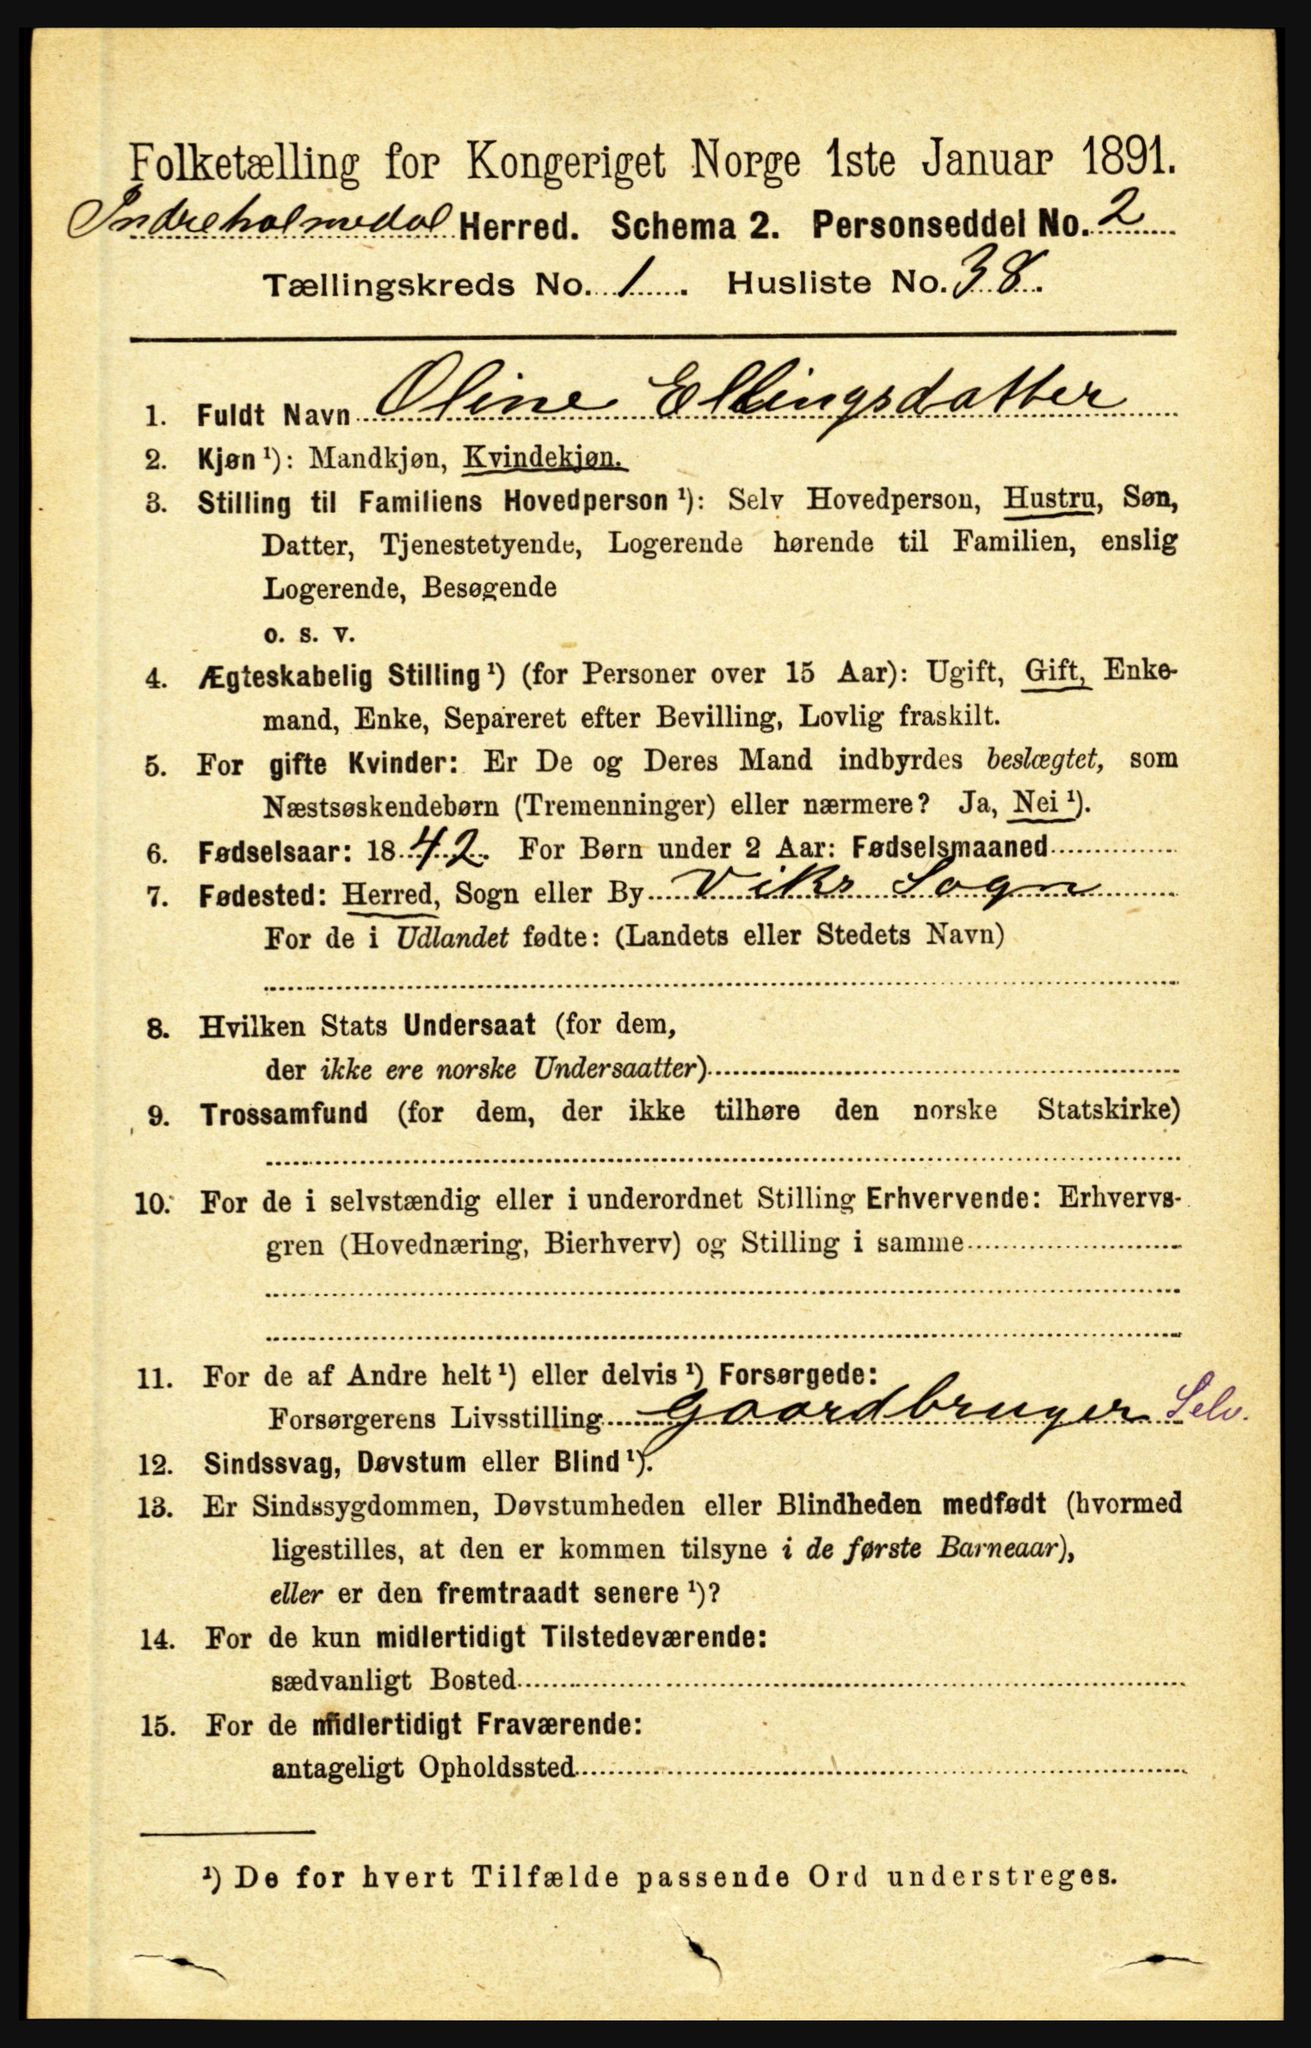 Folketælling for Kongeriget Norge 1ste Januar 1891.
Indreholmedal Herred. Schema 2. Personseddel No. 2
Tællingskreds No. 1. Husliste No. 38.
1. Fuldt Navn Oline Ellingsdatter
2. Kjøn ¹): Mandkjøn, Kvindekjøn.
3. Stilling til Familiens Hovedperson ¹): Selv Hovedperson, Hustru, Søn,
Datter, Tjenestetyende, Logerende hørende til Familien, enslig
Logerende, Besøgende
o. s. v.
4. Ægteskabelig Stilling ¹) (for Personer over 15 Aar): Ugift, Gift, Enke-
mand, Enke, Separeret efter Bevilling, Lovlig fraskilt.
5. For gifte Kvinder: Er De og Deres Mand indbyrdes beslægtet, som
Næstsøskendebørn (Tremenninger) eller nærmere? Ja, Nei ¹).
6. Fødselsaar: 1842. For Børn under 2 Aar: Fødselsmaaned
7. Fødested: Herred, Sogn eller By Viks Sogn
For de i Udlandet fødte: (Landets eller Stedets Navn)
8. Hvilken Stats Undersaat (for dem,
der ikke ere norske Undersaatter)
9. Trossamfund (for dem, der ikke tilhøre den norske Statskirke)
10. For de i selvstændig eller i underordnet Stilling Erhvervende: Erhvervs-
gren (Hovednæring, Bierhverv) og Stilling i samme
11. For de af Andre helt ¹) eller delvis ¹) Forsørgede:
Forsørgerens Livsstilling Gaardbruger Selv.
12. Sindssvag, Døvstum eller Blind ¹).
13. Er Sindssygdommen, Døvstumheden eller Blindheden medfødt (hvormed
ligestilles, at den er kommen tilsyne i de første Barneaar),
eller er den fremtraadt senere ¹)?
14. For de kun midlertidigt Tilstedeværende:
sædvanligt Bosted
15. For de midlertidigt Fraværende:
antageligt Opholdssted
¹) De for hvert Tilfælde passende Ord understreges.